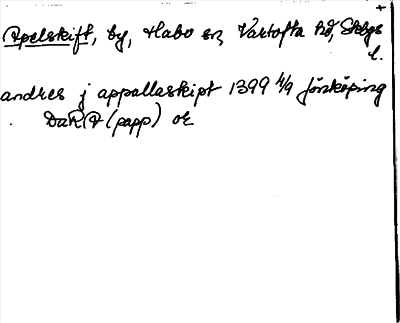 +
Apelskift, by, Habo sn, Vartofta hd, Skbgs
l.
andres j appallaskipt 1399 4/9 Jönköping
DaRA (papp) or